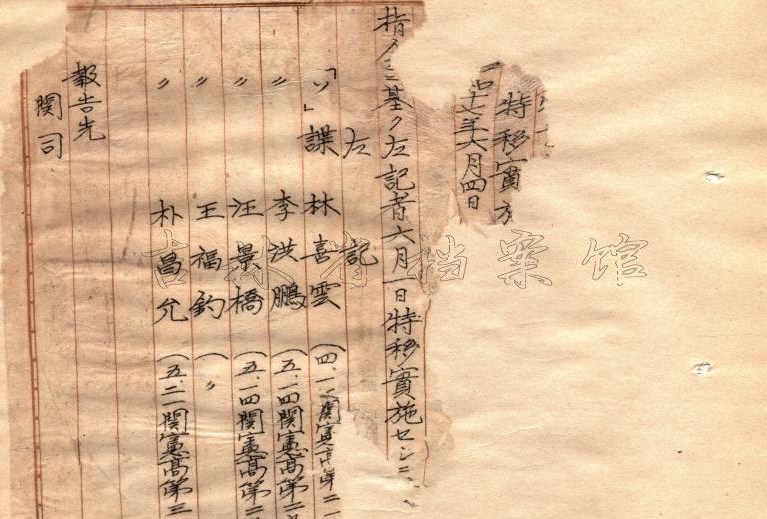 特移實
四十七年六月四日
指令ニ基ク左記者六月一日特移實施セシニ、
左記
「ソ」諜 林喜雲 (四.一 関憲高第二
〃 李洪鵬 (五.一四関憲高第二
〃 汪景橋 (五.一四関憲高第二
〃 王福鈞 (〃
〃 朴昌允 (五.二一関憲高第三
報告先
関司
吉林省档案馆